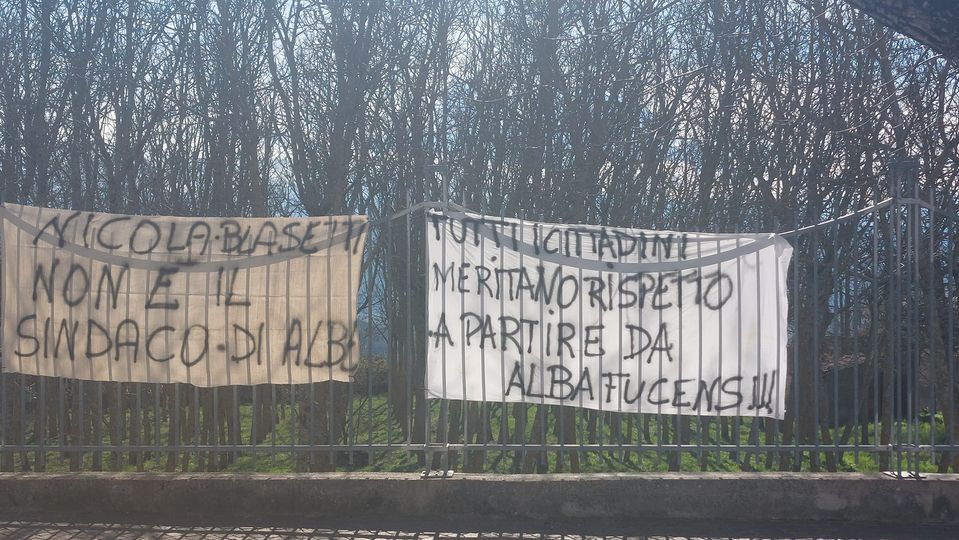 NICOLA·BLASETTI
NON E IL
SINDACO·DI ALBA
TUTTI I CITTADINI
MERITANO RISPETTO
A PARTIRE DA
ALBA FUCENS!!!